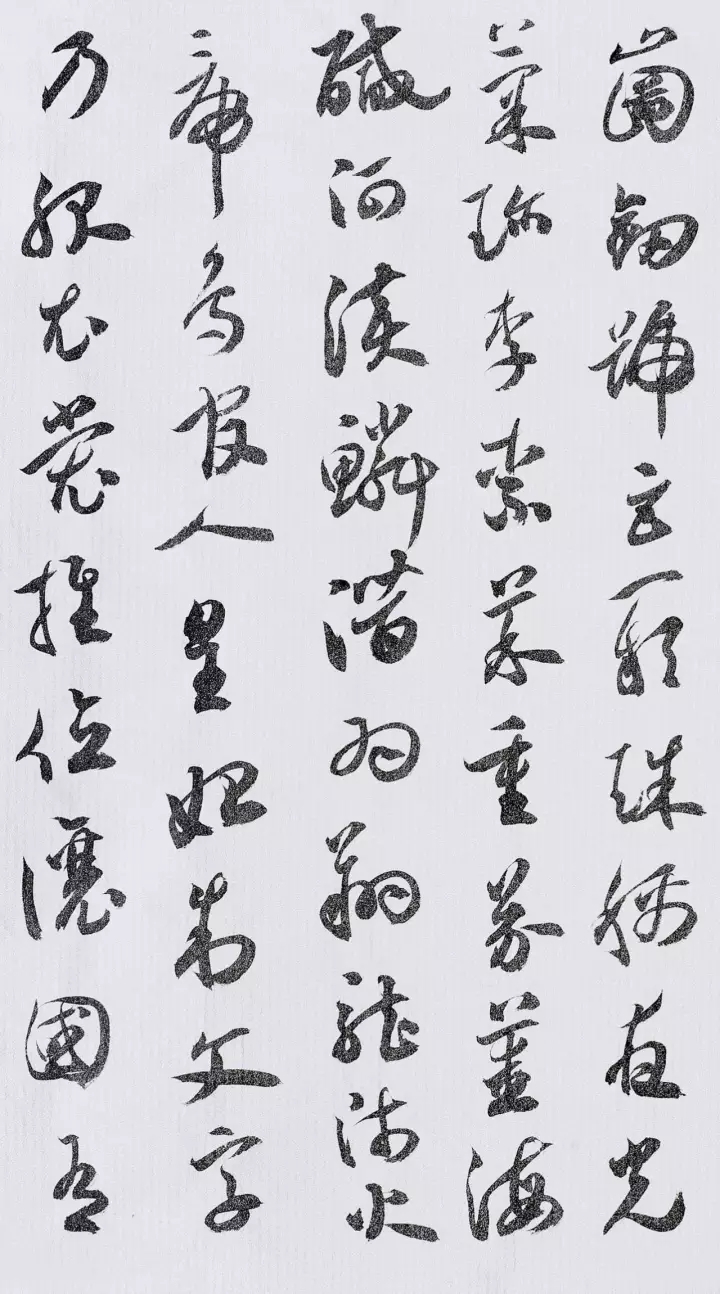 崗劒號巨闕珠稱夜光
菓珍李柰菜重芥薑海
醎河淡鱗潛羽翔龍師火
帝鳥官人皇始制文字
乃服衣裳推位讓國有